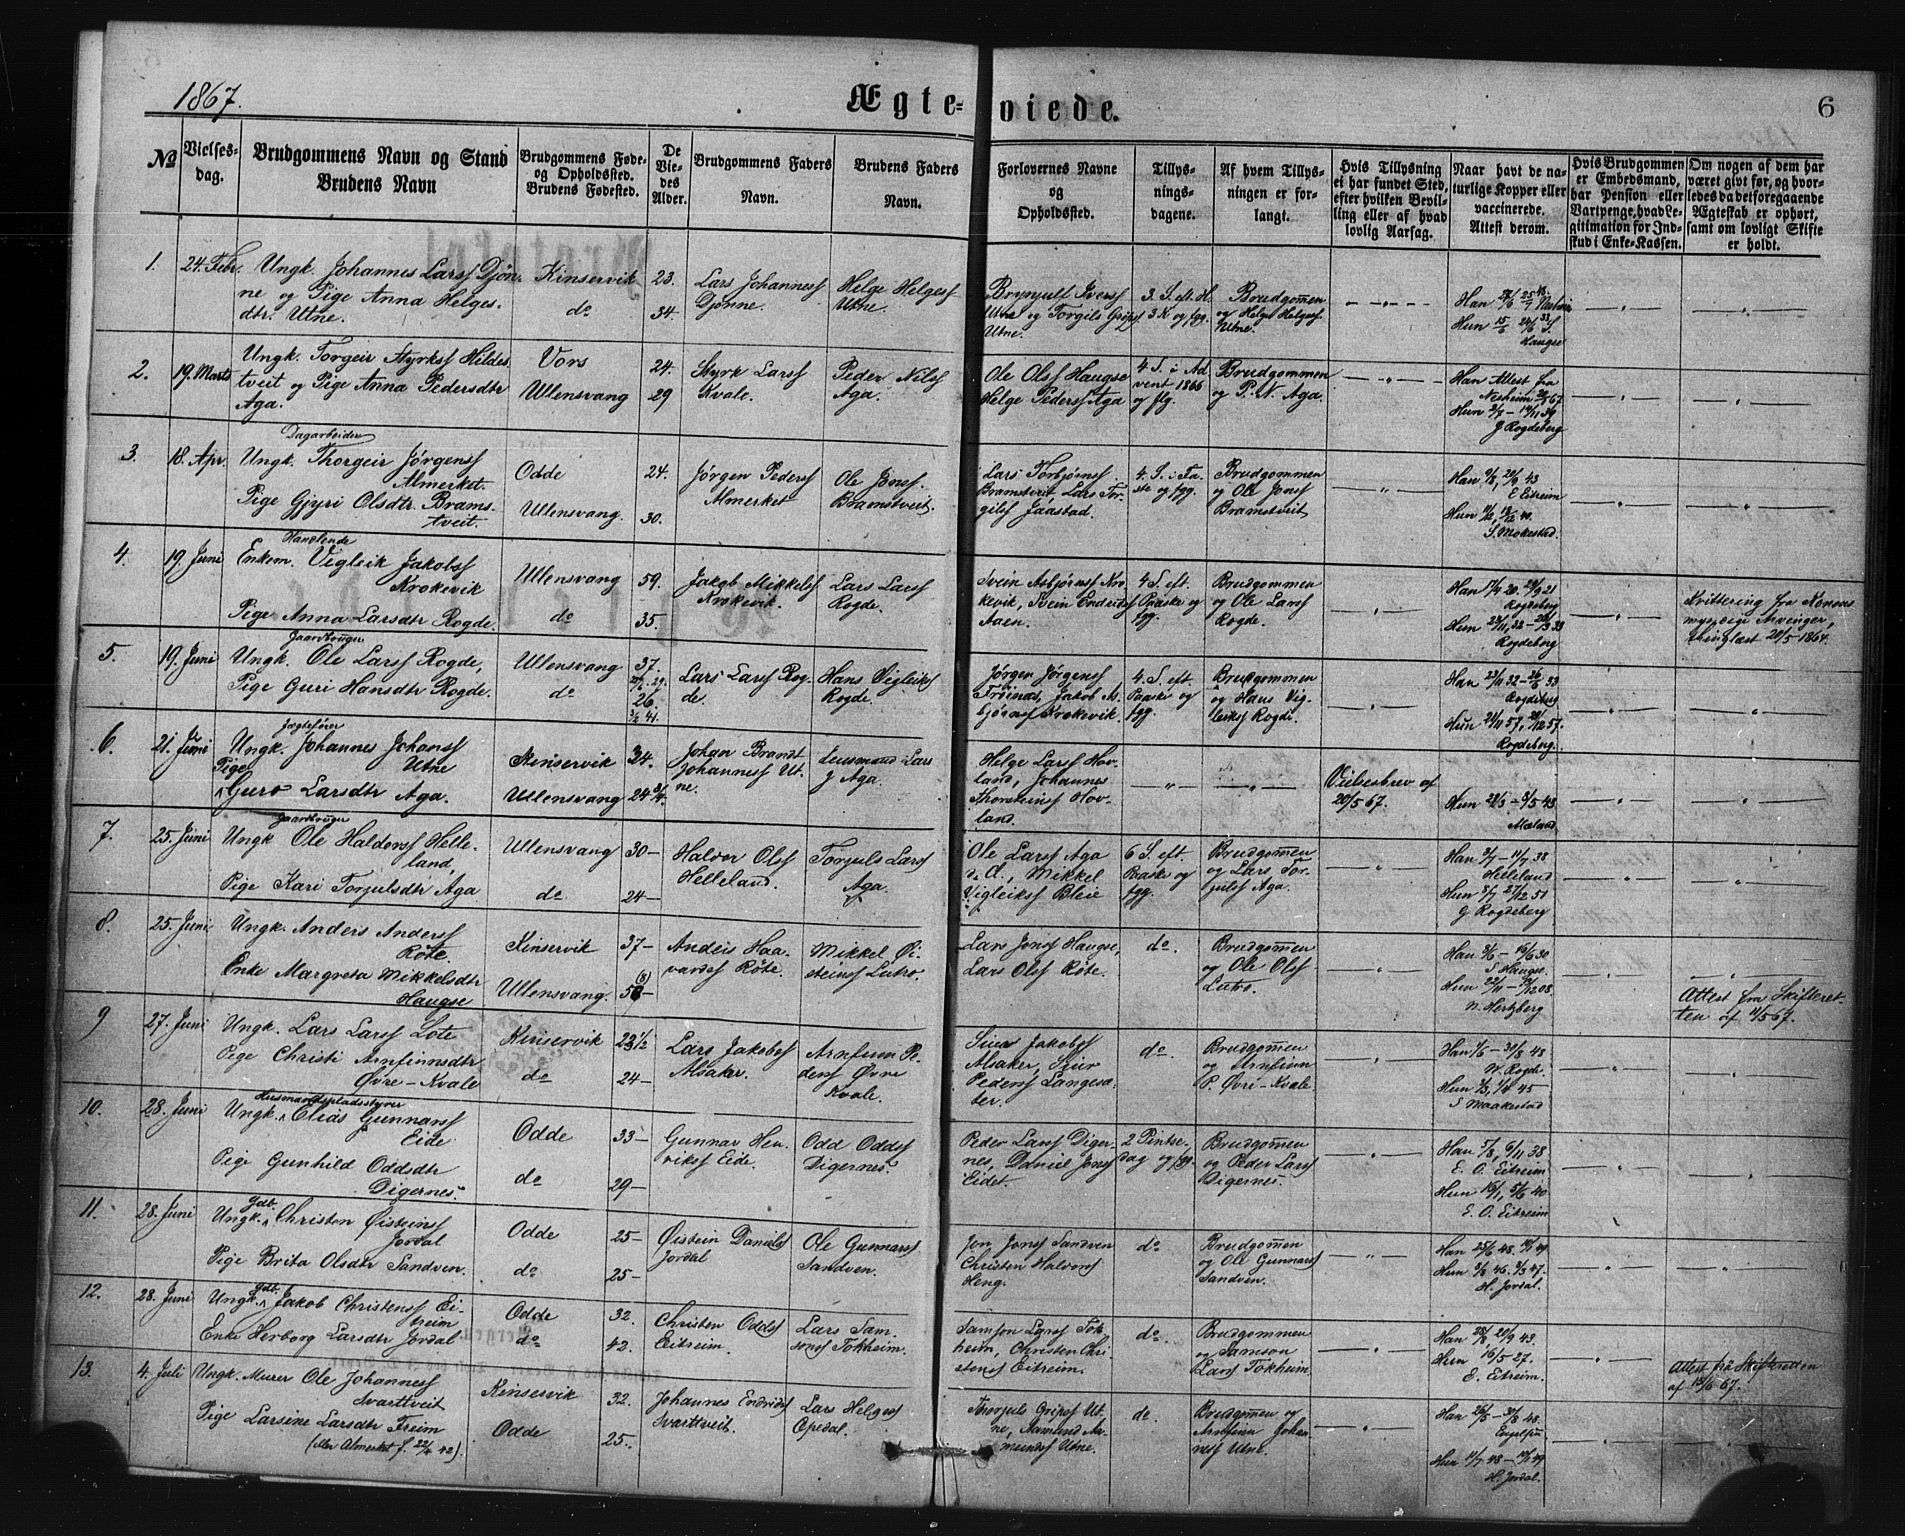 1867.
Ægte-viede.
6
No
Vielses-
dag.
Brudgommens Navn og Stand
Brudens Navn
Brudgommens Føde-
og Opholdssted.
Brudens Fødested.
De
Vie-
des
Alder.
Brudgommens Faders
Navn.
Brudens Faders
Navn.
Forlovernes Navne
og
Opholdssted.
Tillys-
nings-
dagene.
Af hvem Tillys-
ningen er for-
langt.
Hvis Tillysning
ei har fundet Sted,
efter hvilken Bevil-
ling eller af hvad
lovlig Aarsag.
Naar havt de na-
turlige Kopper eller
vaccinerede.
Attest derom.
Hvis Brudgommen
er Embedsmand,
har Pension eller
Vartpenge, hvad Le-
gitimation for Ind-
skud i Enke-Kassen.
Om nogen af dem har
været givt før, og hvor-
ledes da det foregaaende
Ægteskab er ophørt,
samt om lovligt Skifte
er holdt.
1. 24. Febr. Ungk. Johannes Larss Djøn-
ne og Pige Anna Helges-
dtr. Utne.
Kinservik
do
23.
34.
Lars Johanness
Djønne.
Helge Helgess
Utne.
Brynjulf Iverss
Utne og Torgils Gripss
Utne.
3. S. eft. H.
3 K og fgg.
Brudgom̄en
og Helge Helgess.
Utne.
Han
Hun
Haugse
2. 19. Marts Ungk. Torgeir Styrkss Hildes-
tveit og Pige Anna Pedersdtr
Aga.
Vors
Ullensvang
24.
29
Styrk Larss
Kvale.
Peder Nilss
Aga.
Ole Olss Haugse
Helge Pederss Aga
4 S. i Ad
vent 1866
og flg.
Brudgommen
og P. N. Aga.
Han Attest fra
Hun
G Rogdeberg
3. 18. Apr. Dagarbeider
Ungk. Thorgeir Jørgenss
Almerket.
Pige Gjyri Olsdtr. Brams-
tveit.
Odde
Ullensvang.
24.
30.
Jørgen Pederss
Almerket
Ole Jonss.
Bramstveit.
Lars Torbjørnss
Bramstveit, Lars Tor-
gilss Jaastad.
4. S. i Fa-
ste og fgg.
Brudgommen
og Ole Jonss
Bramstveit
Han 9/8, 20/9 43
E Eitreim
Hun
S. Mokestad.
4. 19. Juni Handlende
Enkem. Vigleik Jakobss
Krokevik
Pige Anna Larsdtr Rogde.
Ullensvang
do
59.
35.
Jakob Mikkelss
Krokevik.
Lars Larss
Rogde.
Svein Asbjørnss Kro-
kevik, Svein Endridss
Aaen.
4 S. eft.
Paaske og
fgg.
Brudgommen
og Ole Larss
Rogde.
Han
Rogdeberg
Hun
Rogdeberg
Kvittering fra Konens
myndige Arvinger,
thinglæst 20/5 1864.
5. 19. Juni Gaardbruger
Ungk. Ole Larss Rogde,
Pige Guri Hansdtr Rogde.
Ullensvang
do
37.
26.
Lars Larss Rog-
de.
Hans Vigleikss
Rogde.
Jørgen Jørgenss
Freinæs, Jakob As-
bjørnss Krokevik.
4. S. eft
Paaske og
fgg.
Brudgommen
og Hans Vig-
leikss Rogde.
Han
Hun
Rogdeberg.
6. 21. Juni Jægtefører
Ungk. Johannes Johanss
Utne
Pige
Guro Larsdtr Aga.
Kinservik
Ullensvang
34.
24
Johan Brandt
Johanness Ut-
ne.
Lensmand Lars
J Aga.
Helge Larss Hov-
land, Johannes
Thorsteinss Hov-
land.
Vielsesbrev af
20/5 67.
Hun 28/3 – 8/5 43
Mæland
7. 25. Juni Gaardbruger
Ungk Ole Haldorss Helle-
land,
Pige Kari Torjulsdtr Aga
Ullensvang
do
30 –
24 –
Haldor Olss
Helleland.
Torjuls Larss
Aga.
Ole Larss Aga
Mikkel
Vigleikss Bleie
6 S. eft.
Paaske og
fgg.
Brudgom̄en
og Lars Tor-
julss Aga.
Han 3/7 – 11/7 38
Helleland
Hun
G Rogdeberg
8. 25. Juni Ungk. Anders Anderss
Røte.
Enke Margreta Mikkelsdtr
Haugse
Kinservik
Ullensvang.
37 –
Anders Haa-
vardss Røte.
Mikkel Øi-
steinss Lutro.
Lars Jonss Haugse,
Lars Olss Røte.
do.
Brudgom̄en
og Ole Olss
Lutro.
Han
S Haugse.
Hun
N. Hertzberg
Attest fra Skifteret-
ten af 11/5 67.
9 27. Juni Ungk. Lars Larss Lote
Pige Christi Arnfinnsdtr
Øvre-Kvale
Kinservik
do.
23 1/2
24 –
Lars Jakobss
Alsaker.
Arnfinn Pe-
derss Øvre
Kvale.
Siur Jakobss
Alsaker, Siur
Pederss Langesæ-
ter.
do.
Brudgom̄en
og Arnfinn
P. Øvre-Kvale.
Han
Hun
S Maakestad
10. 28. Juni Husmandspladsstyrer
Ungk. Elias Gunnarss
Eide
Pige Gunhild Oddsdtr
Digernes.
Odde
do
33 –
29 –
Gunnar Hen-
rikss Eide.
Odd Oddss
Digernes.
Peder Larss Diger-
nes, Daniel Jonss
Eidet.
2 Pintse-
dag og fgg.
Brudgom̄en
og Peder Larss
Digernes.
Han 5/8, 6/11 38
E. O. Eitreim
Hun 16/1, 5/6 40
E. O. Eitreim
11. 28. Juni Gdb.
Ungk. Christen Øisteinss
Jordal
Pige Brita Olsdtr Sandven.
Odde
do.
25 –
25 –
Øistein Daniels
Jordal
Ole Gunnarss
Sandven.
Jon Jonss Sandven
Christen Halvorss
Heng.
do.
Brudgom̄en
og Ole Gunnarss
Sandven.
Han
Hun
H. Jordal.
12. 28. Juni Gdb.
Ungk. Jakob Christenss Ei-
treim
Enke Herborg Larsdtr Jordal
Odde
do.
32.
42.
Christen Oddss
Eitreim.
Lars Sam-
sonss Tokheim.
Samson Larss Tok-
heim, Christen Chri-
stenss Eitreim.
do.
Brudgommen
og Samson
Larss Tokheim.
Han 28/8 20/9 43.
Hun 16/5 27.
E. Eitreim.
Attest frå Skifteretten
af 15/6 67.
13. 4. Juli Ungk. Murer Ole Johanness
Svarttveit
Pige Larsine Larsdtr Freim
(eller Almerket f. 22/4 42).
Kinservik
Odde
32.
25.
Johannes Endridss
Svarttveit.
Lars Helgess
Opedal.
Thorjuls Gripss Ut-
ne, Aamund Aa-
mundss Utne.
do.
Brudgom̄en og
Arnfinn Johan-
ness Utne.
Han
Hun 11/7 48 – 10/1 49
H. Jordal.